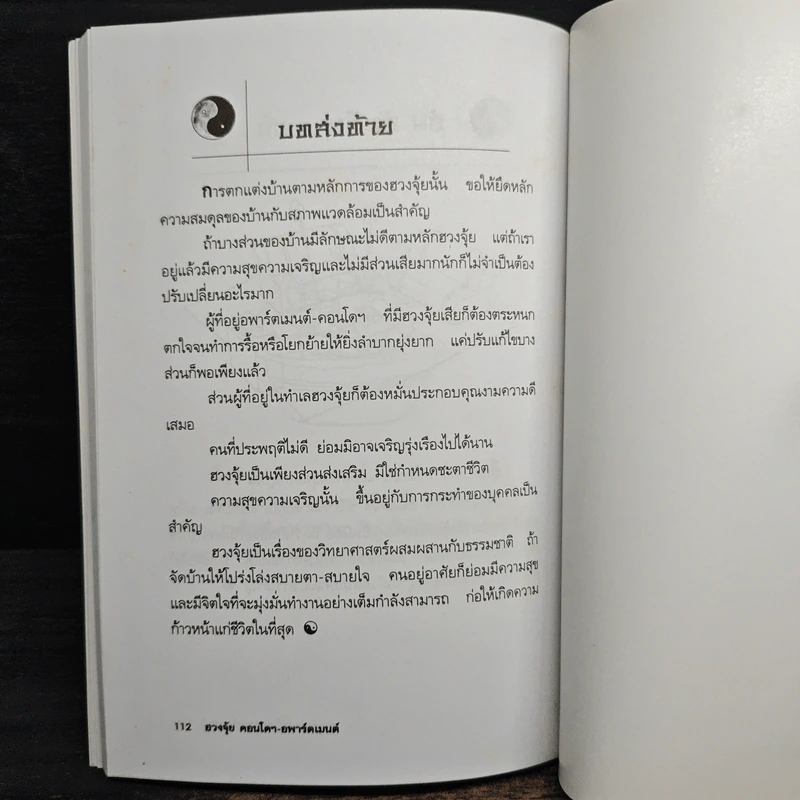 บทส่งท้าย
การตกแต่งบ้านตามหลักการของฮวงจุ้ยนั้น ขอให้ยึดหลัก
ความสมดุลของบ้านกับสภาพแวดล้อมเป็นสำคัญ
ถ้าบางส่วนของบ้านมีลักษณะไม่ดีตามหลักฮวงจุ้ย แต่ถ้าเรา
อยู่แล้วมีความสุขความเจริญและไม่มีส่วนเสียมากนักก็ไม่จำเป็นต้อง
ปรับเปลี่ยนอะไรมาก
ผู้ที่อยู่อพาร์ตเมนต์-คอนโดฯ ที่มีฮวงจุ้ยเสียก็ต้องตระหนก
ตกใจจนทำการรื้อหรือโยกย้ายให้ยิ่งลำบากยุ่งยาก แค่ปรับแก้ไขบาง
ส่วนก็พอเพียงแล้ว
ส่วนผู้ที่อยู่ในทำเลฮวงจุ้ยก็ต้องหมั่นประกอบคุณงามความดี
เสมอ
คนที่ประพฤติไม่ดี ย่อมมิอาจเจริญรุ่งเรืองไปได้นาน
ฮวงจุ้ยเป็นเพียงส่วนส่งเสริม มิใช่กำหนดชะตาชีวิต
ความสุขความเจริญนั้น ขึ้นอยู่กับการกระทำของบุคคลเป็น
สำคัญ
ฮวงจุ้ยเป็นเรื่องของวิทยาศาสตร์ผสมผสานกับธรรมชาติ ถ้า
จัดบ้านให้โปร่งโล่งสบายตา-สบายใจ คนอยู่อาศัยก็ย่อมมีความสุข
และมีจิตใจที่จะมุ่งมั่นทำงานอย่างเต็มกำลังสามารถ ก่อให้เกิดความ
ก้าวหน้าแก่ชีวิตในที่สุด
112 ฮวงจุ้ย คอนโดฯ-อพาร์ตเมนต์